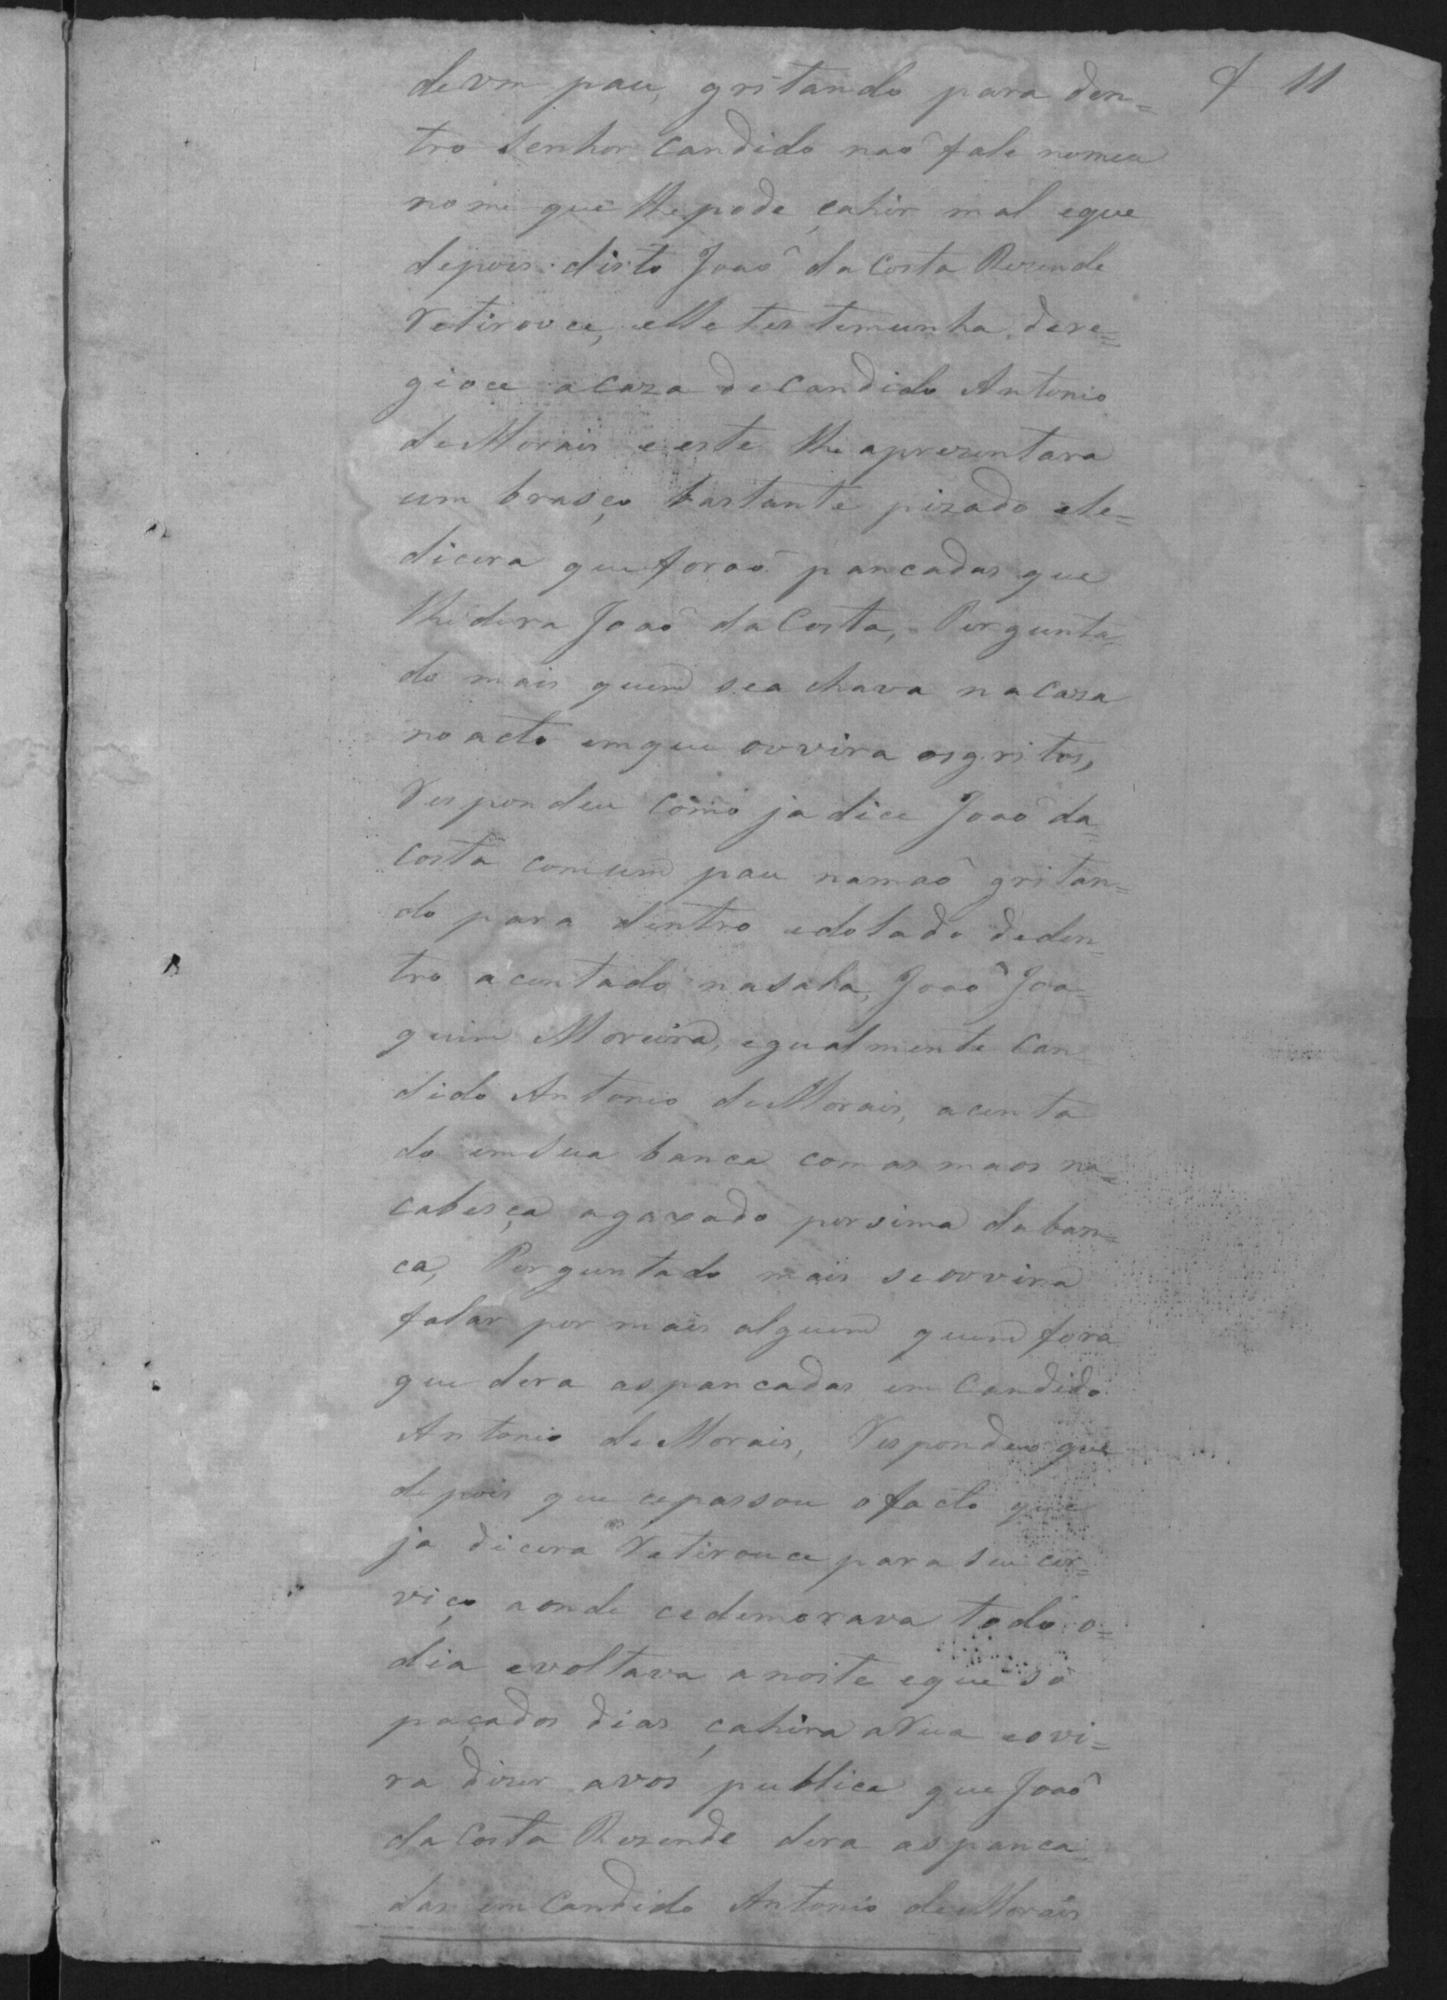 de vm pau, gritando para den=
tro Senhor Candido naõ fale nomeu
nome que lhe pode çahir mal eque
depois disto Joaõ da Costa Rezende
Retirouce, elle testemunha dere=
gioce acaza de Candido Antonio
de Morais eeste lhe aprezentara
um brasço bastante pizado ele=
dicera que foraõ pancadas que
lhe dera Joaõ da Costa, Pergunta=
do mais quem sea chava nacaza
no acto emque ouvira osgritos,
Respondeu como ja dice Joaõ da=
Costa comum pau namaõ gritan=
do para dentro edolado deden=
tro acentado nasala, Joaõ Joa=
quim Moreira, egualmente Can
dido Antonio de Morais, acenta
do emSua banca comas maos na=
cabesça agaxado porsima da ban=
ca, Perguntado mais seouvira
falar por mais alguem quem fora
que dera aspancadas em Candido
Antonio de Morais, Respondeu que
depois que cepassou ofacto que
ja dicera Retirouce para Seu cer=
viço aonde cedemorava todo o=
dia evoltava anoite eque só
paçados dias çahira aRua eovi=
ra dizer avos publica que Joaõ
da Costa Rezende dera aspanca
das em Candido Antonio de Morais
11